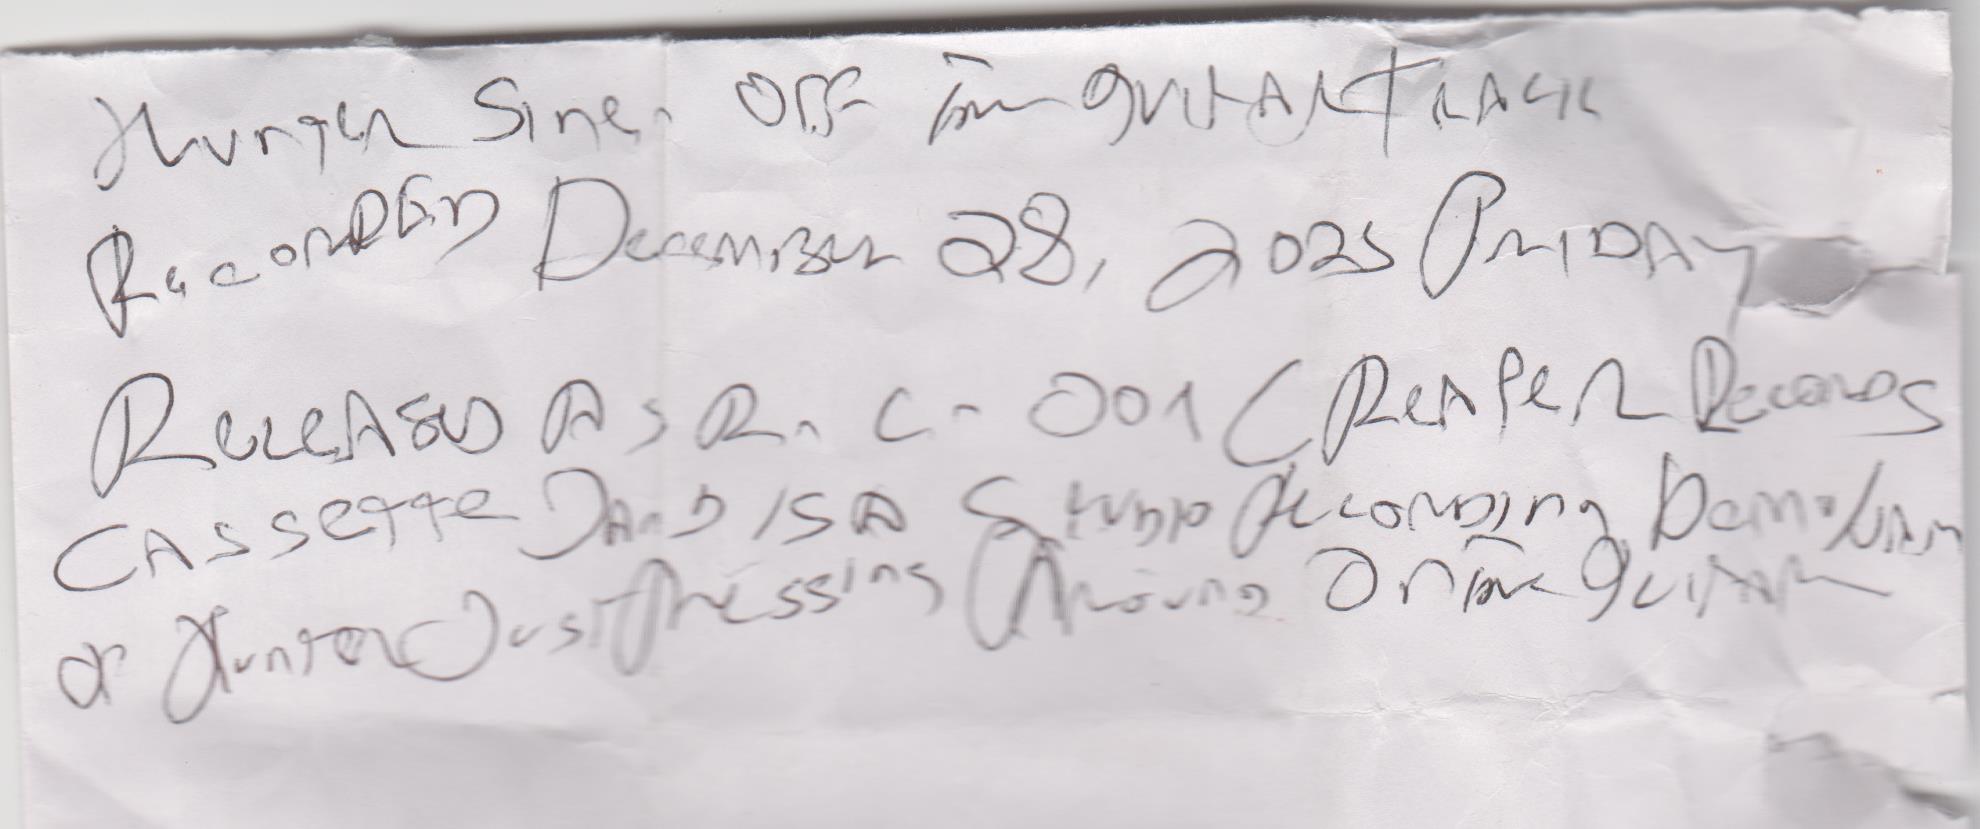 Hunter Sines Off the guitar track
Recorded December 28, 2025 Friday
Released As R.C-001 (Reaper Records
Cassette) and is a Studio Recording Demo
of Hunter Just Messing Around On The guitar